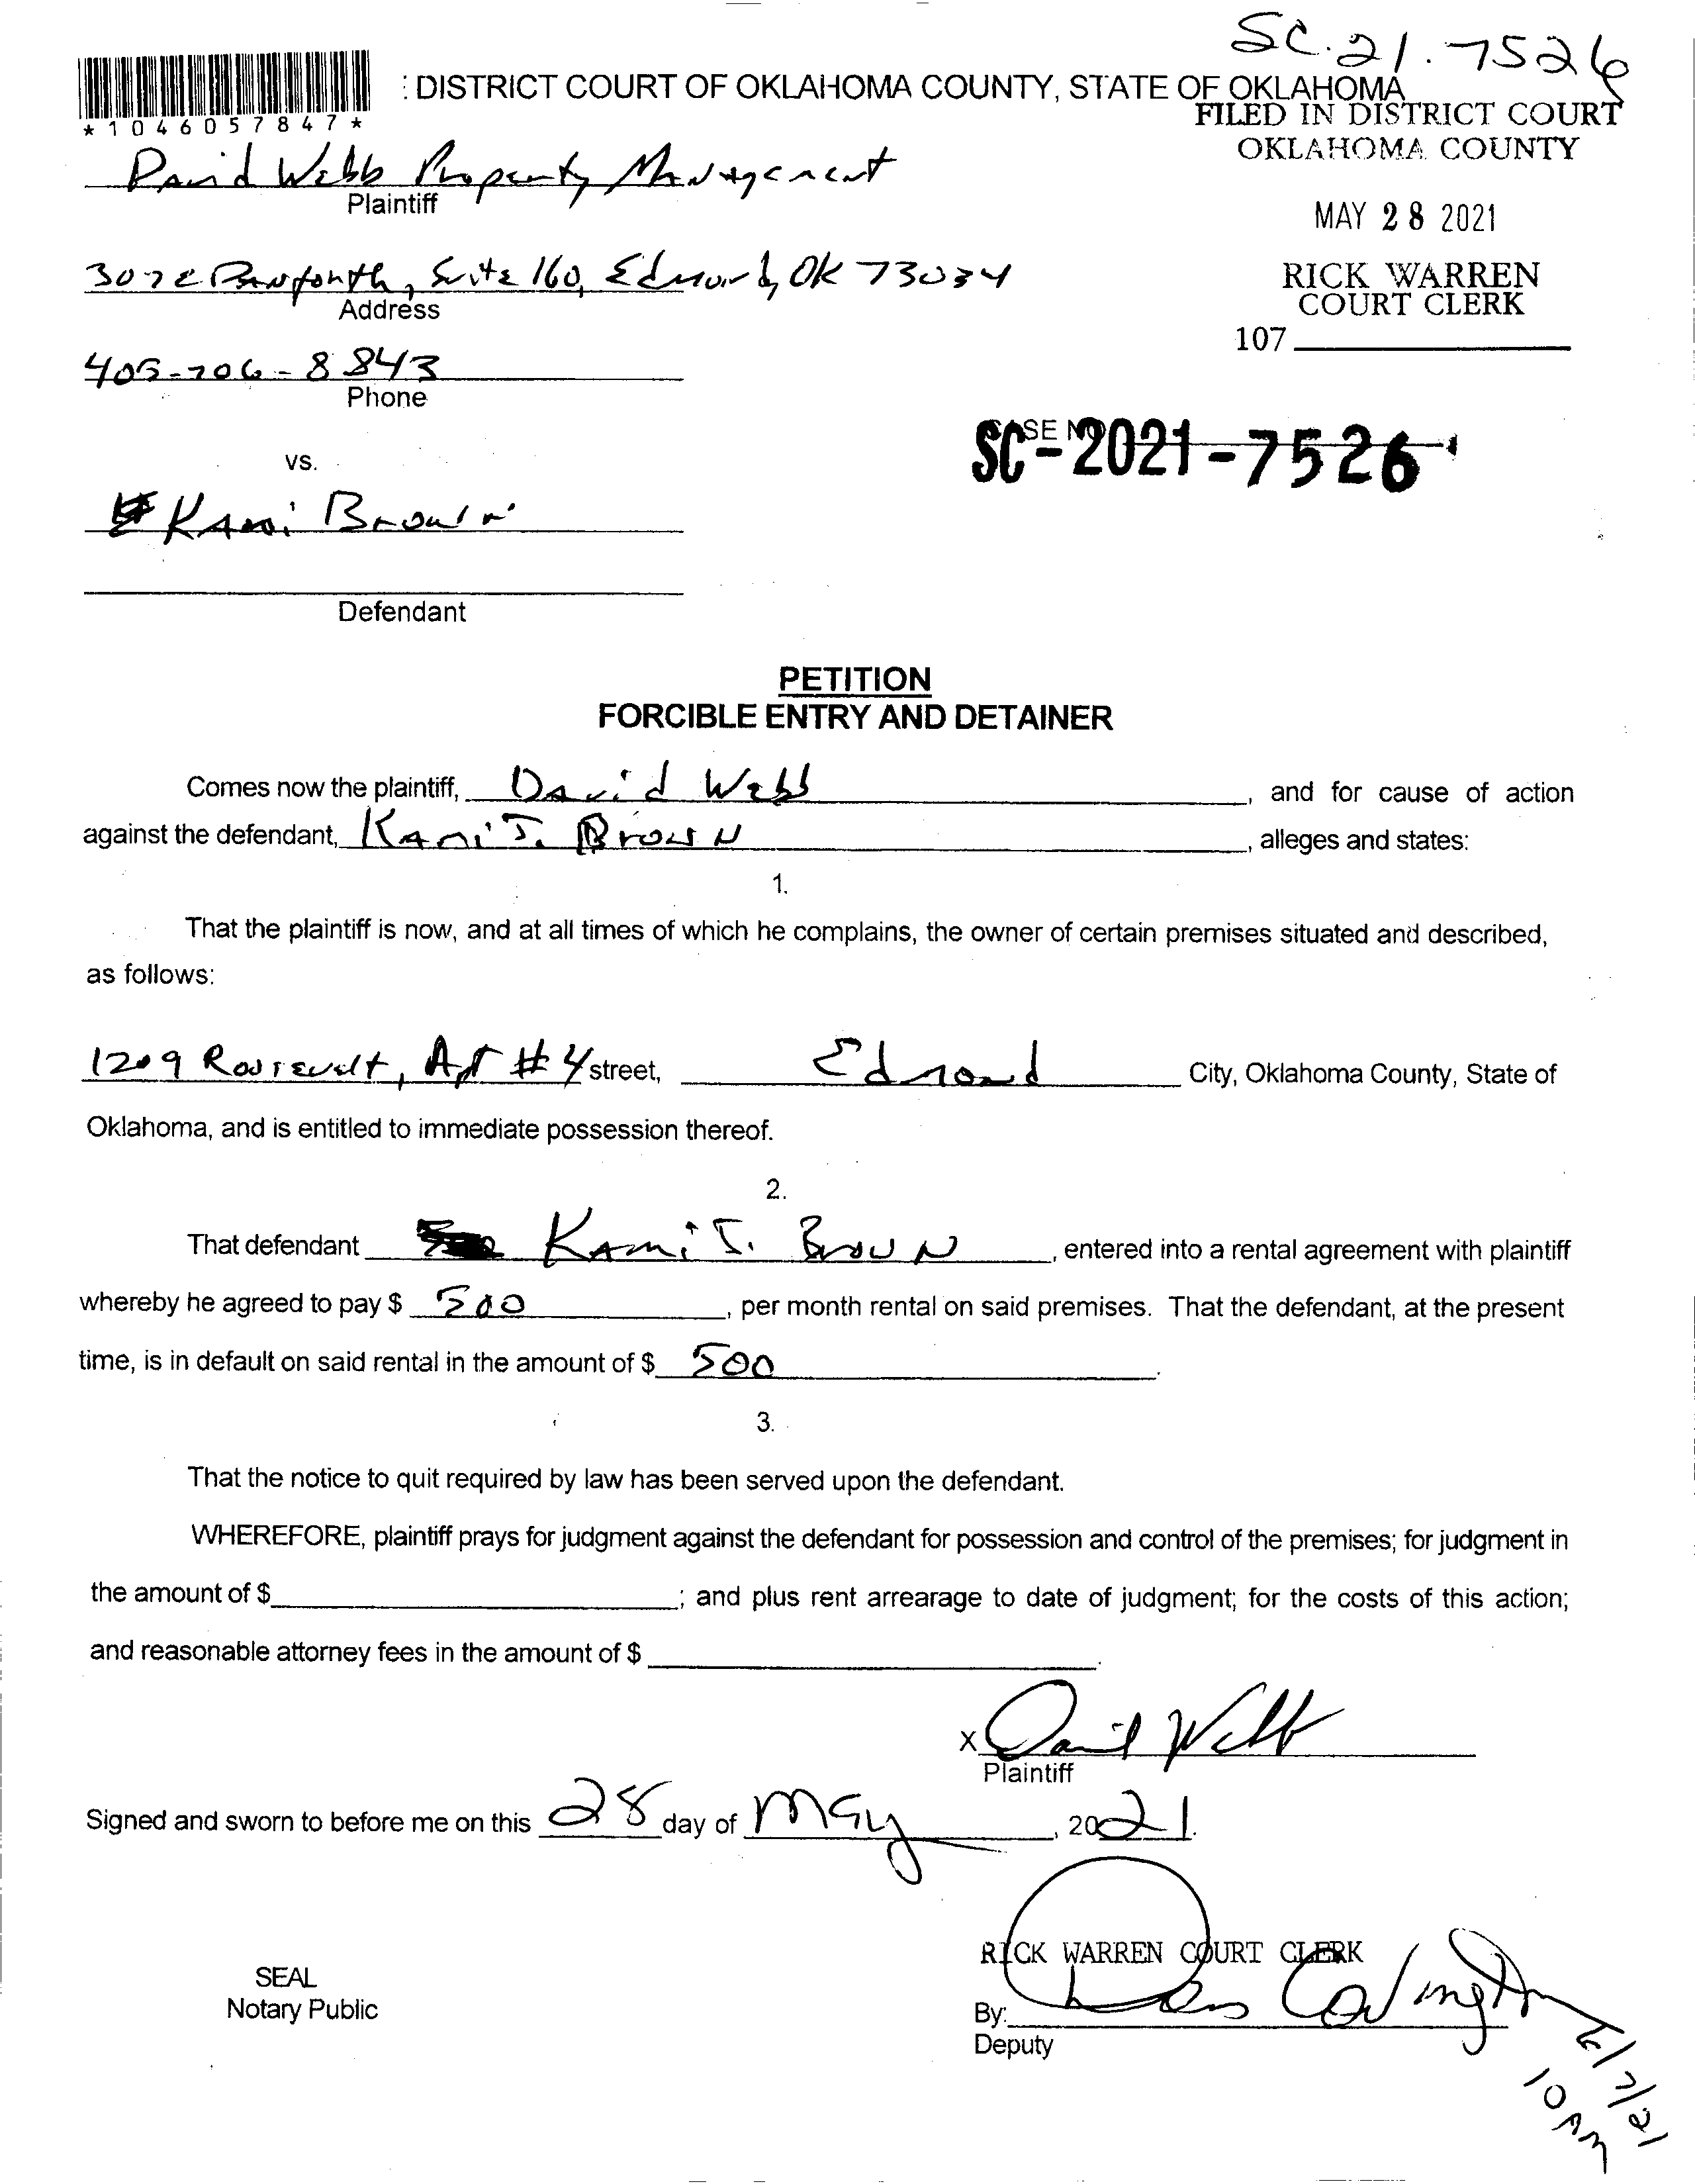 SC.21.7526
: DISTRICT COURT OF OKLAHOMA COUNTY, STATE OF OKLAHOMA
*1046057847*
FILED IN DISTRICT COURT
OKLAHOMA COUNTY
MAY 28 2021
RICK WARREN
COURT CLERK
107
David Webb Property Management
Plaintiff
Suite 160, Edmond, OK 73034
Address
8843
Phone
CASE NO
SC-2021-7526
vs.
Kami Brown
Defendant
PETITION
FORCIBLE ENTRY AND DETAINER
Comes now the plaintiff, David Webb, and for cause of action
against the defendant, Kami J. Brown, alleges and states:
1.
That the plaintiff is now, and at all times of which he complains, the owner of certain premises situated and described,
as follows:
1209 Roosevelt, Apt #4 street, Edmond City, Oklahoma County, State of
Oklahoma, and is entitled to immediate possession thereof.
2.
That defendant Kami J. Brown, entered into a rental agreement with plaintiff
whereby he agreed to pay $ 500, per month rental on said premises. That the defendant, at the present
time, is in default on said rental in the amount of $ 500.
3.
That the notice to quit required by law has been served upon the defendant.
WHEREFORE, plaintiff prays for judgment against the defendant for possession and control of the premises; for judgment in
the amount of $ ; and plus rent arrearage to date of judgment; for the costs of this action;
and reasonable attorney fees in the amount of $ .
X David Webb
Plaintiff
Signed and sworn to before me on this 28 day of May, 2021.
RICK WARREN COURT CLERK
SEAL
Notary Public
By: Covington
Deputy
6/7/21
10 AM